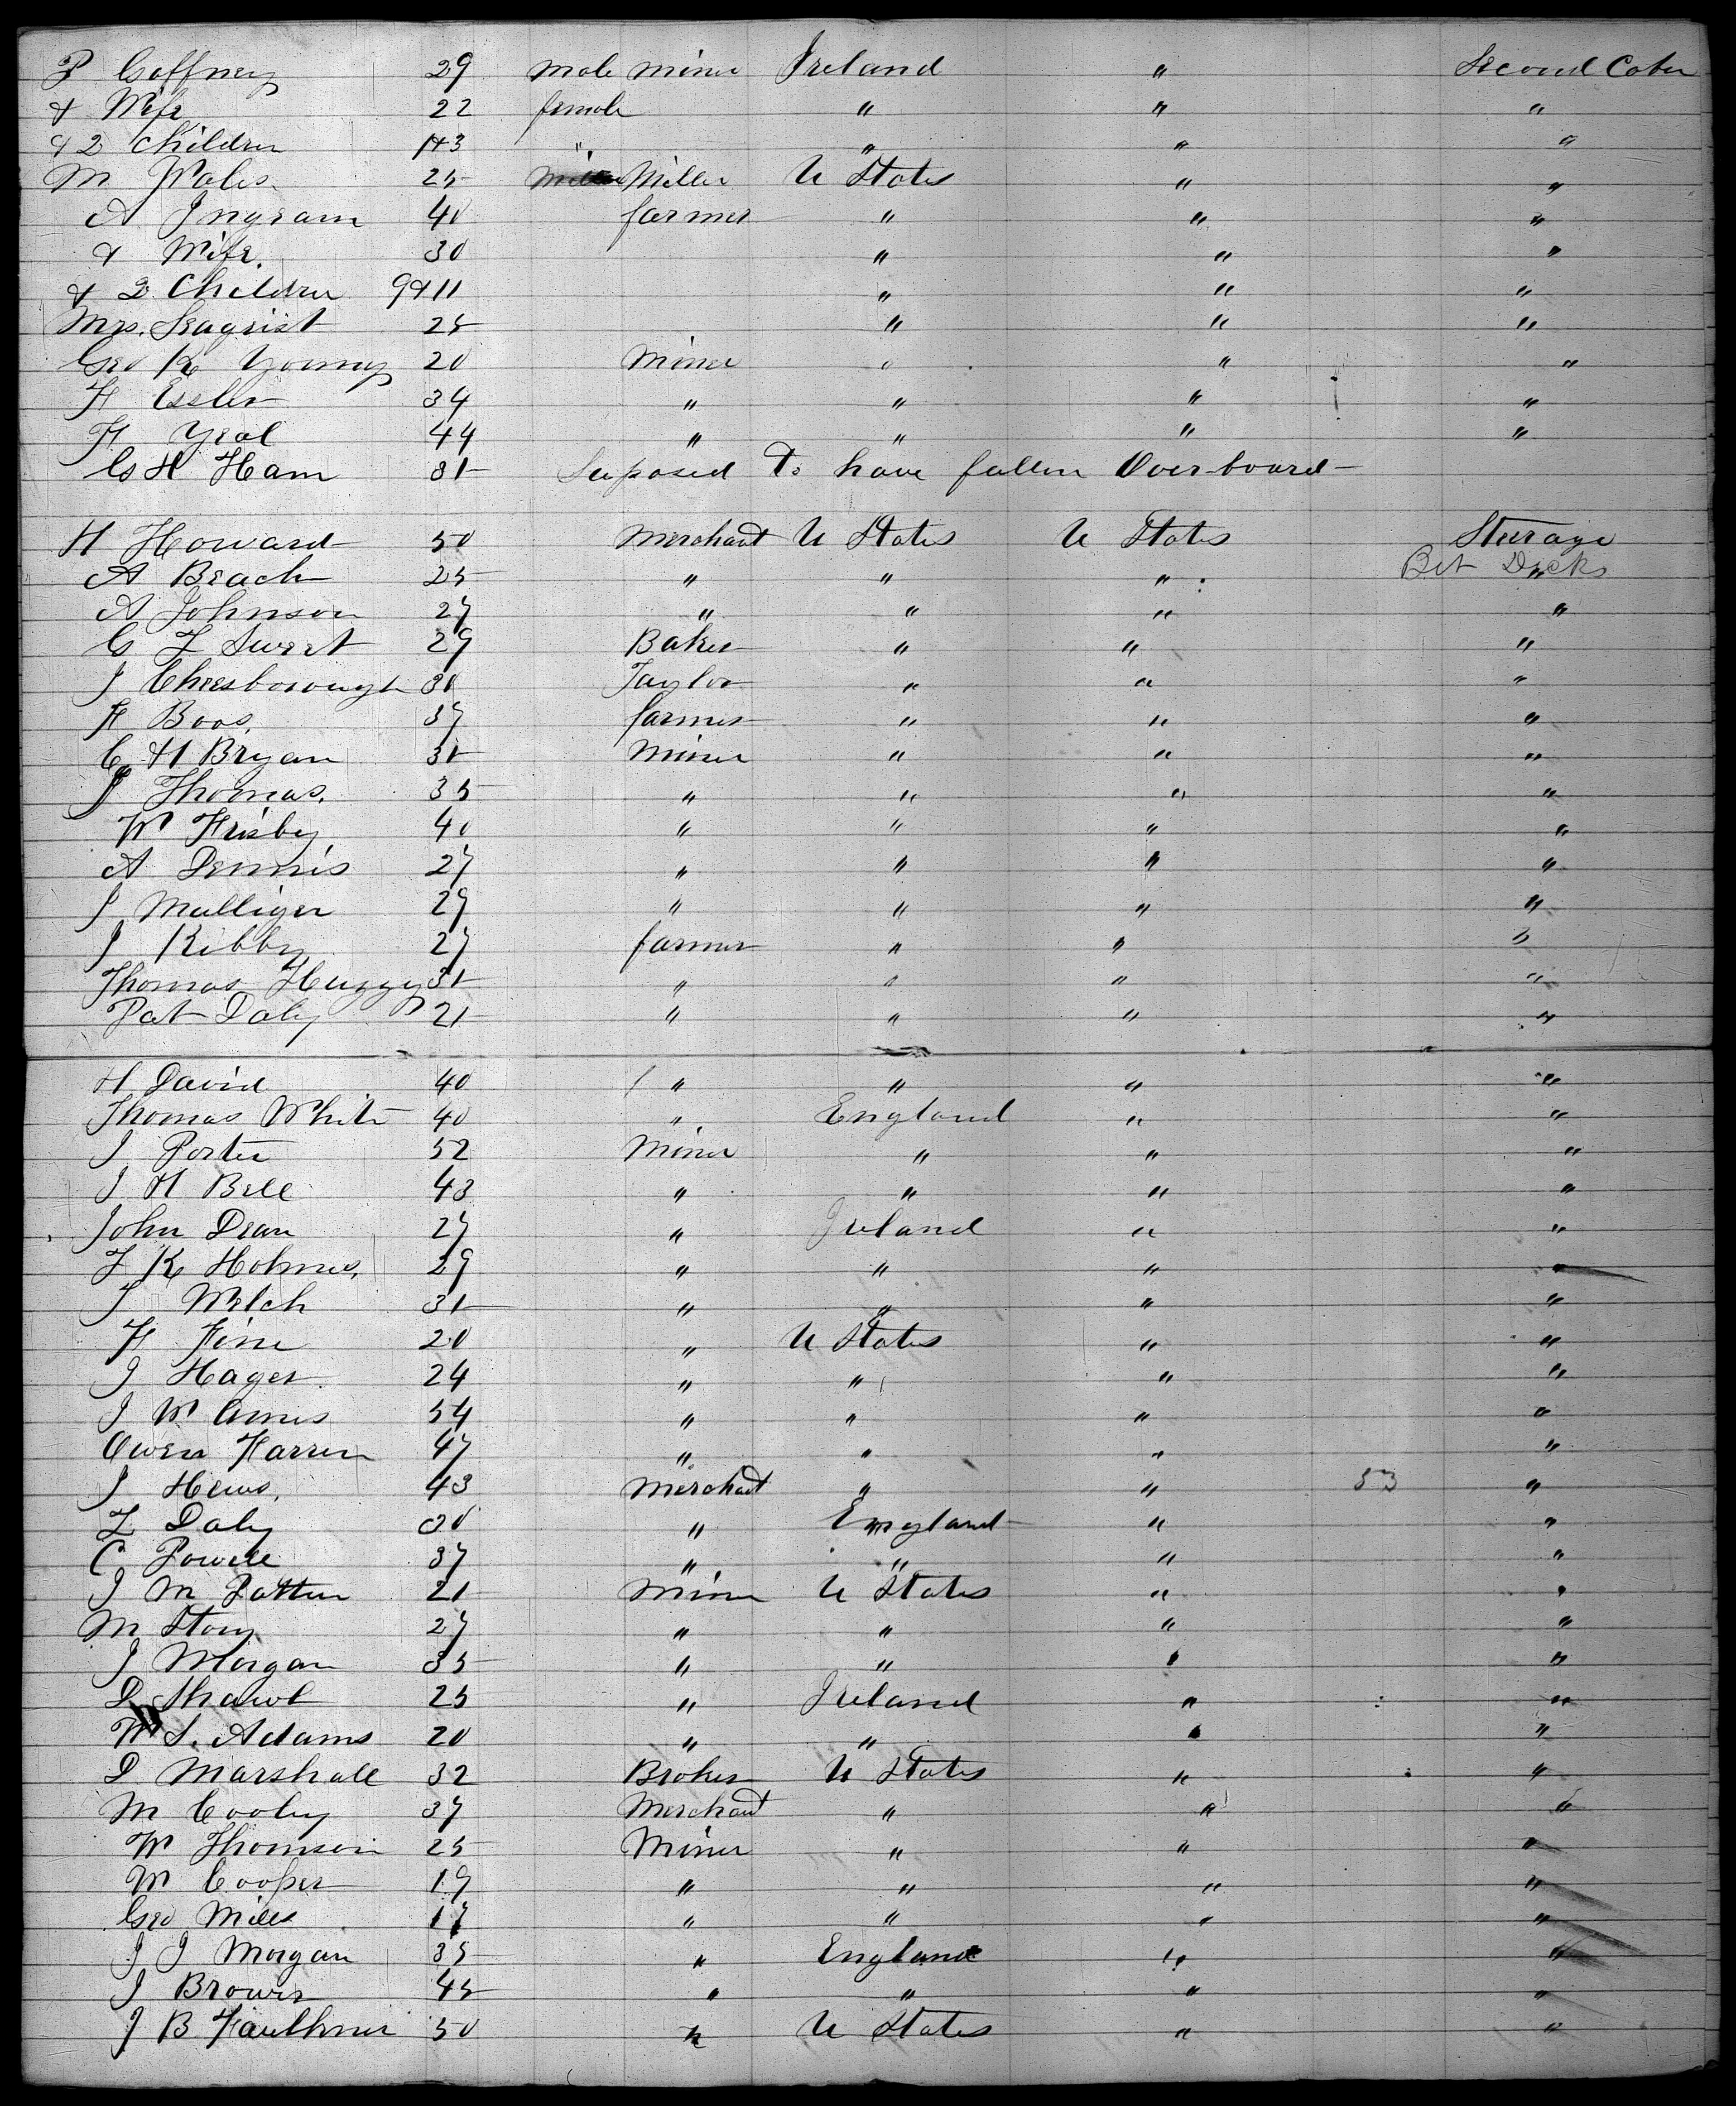 P Gaffney 29 male miner Ireland " Second Cabn
& Wife 22 female " " "
& 2 Children 1+3 " " " "
M Wales 25 Miller U States " "
A Ingram 40 farmer " " "
& Wife. 30 " " "
& 2 Children 9+11 " " "
Mrs. Seaqrist 25 " " "
Geo K Young 20 Miner " " "
H Essler 34 " " " "
H Yeal 44 " " " "
G H Ham 35 Suposed To have fallen Overboard
H Howard 50 Merchant U States U States Steerage
Bet Decks
A Beach 25 " " " "
A Johnson 27 " " " "
C F Sweet 29 Baker " " "
J Cheesborough 30 Taylor " " "
H Boos. 37 farmer " " "
C H Bryan 35 Miner " " "
J Thomas. 35 " " " "
W Frisby 40 " " " "
A Dennis 27 " " " "
J Mulliger 29 " " " "
J Kibby 27 farmer " " "
Thomas Huzzy 35 " " " "
Pat Daly 21 " " " "
H David 40 " " " "
Thomas White 40 " England " "
J Porter 52 Miner " " "
J H Bell 43 " " " "
John Dean 27 " Ireland " "
F K Holmes. 29 " " " "
J Welch 31 " " " "
H Fine 20 " U States " "
J Hager 24 " " " "
J W Ames 54 " " " "
Owen Farren 47 " " " "
J Hews. 43 Merchant " " 53 "
L Daly 30 " England " "
C Powell 37 " " " "
J M Patten 21 Miner U States " "
M Story 27 " " " "
J Morgan 35 " " " "
D Shawl 25 " Ireland " "
W S. Adams 20 " " " "
D Marshall 32 Broker U States " "
M Cooley 37 Merchant " " "
W Thomson 25 Miner " " "
M Cooper 19 " " " "
Geo Miles 17 " " " "
J J Morgan 35 " England " "
J Brown 45 " " " "
J B Faulkner 50 " U States " "